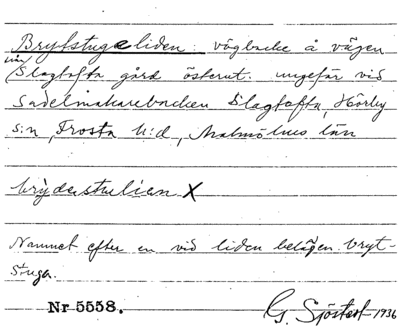 Brytstugeliden vägbacke å vägen
Slagtofta gård österut. ungefär vid
Sadelmakarebacken Slagtofta, Hörby
s:n, Frosta h:d, Malmöhus län
brydestulien X
Namnet efter en vid liden belägen bryt-
stuga.
Nr 5558.
G. Sjöstedt 1936